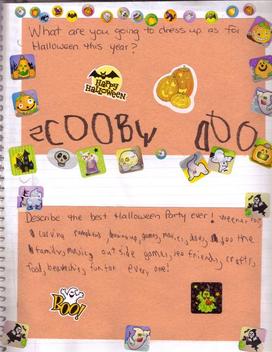 What are you going to dress up as for
Halloween this year?
HAPPY
HALLOWEEN
SCOOBY DOO
Describe the best Halloween Party ever!
carving pumpkins, games, movies,
family, outside games, see friends, crafts,
food, fun for every one!
BOO!